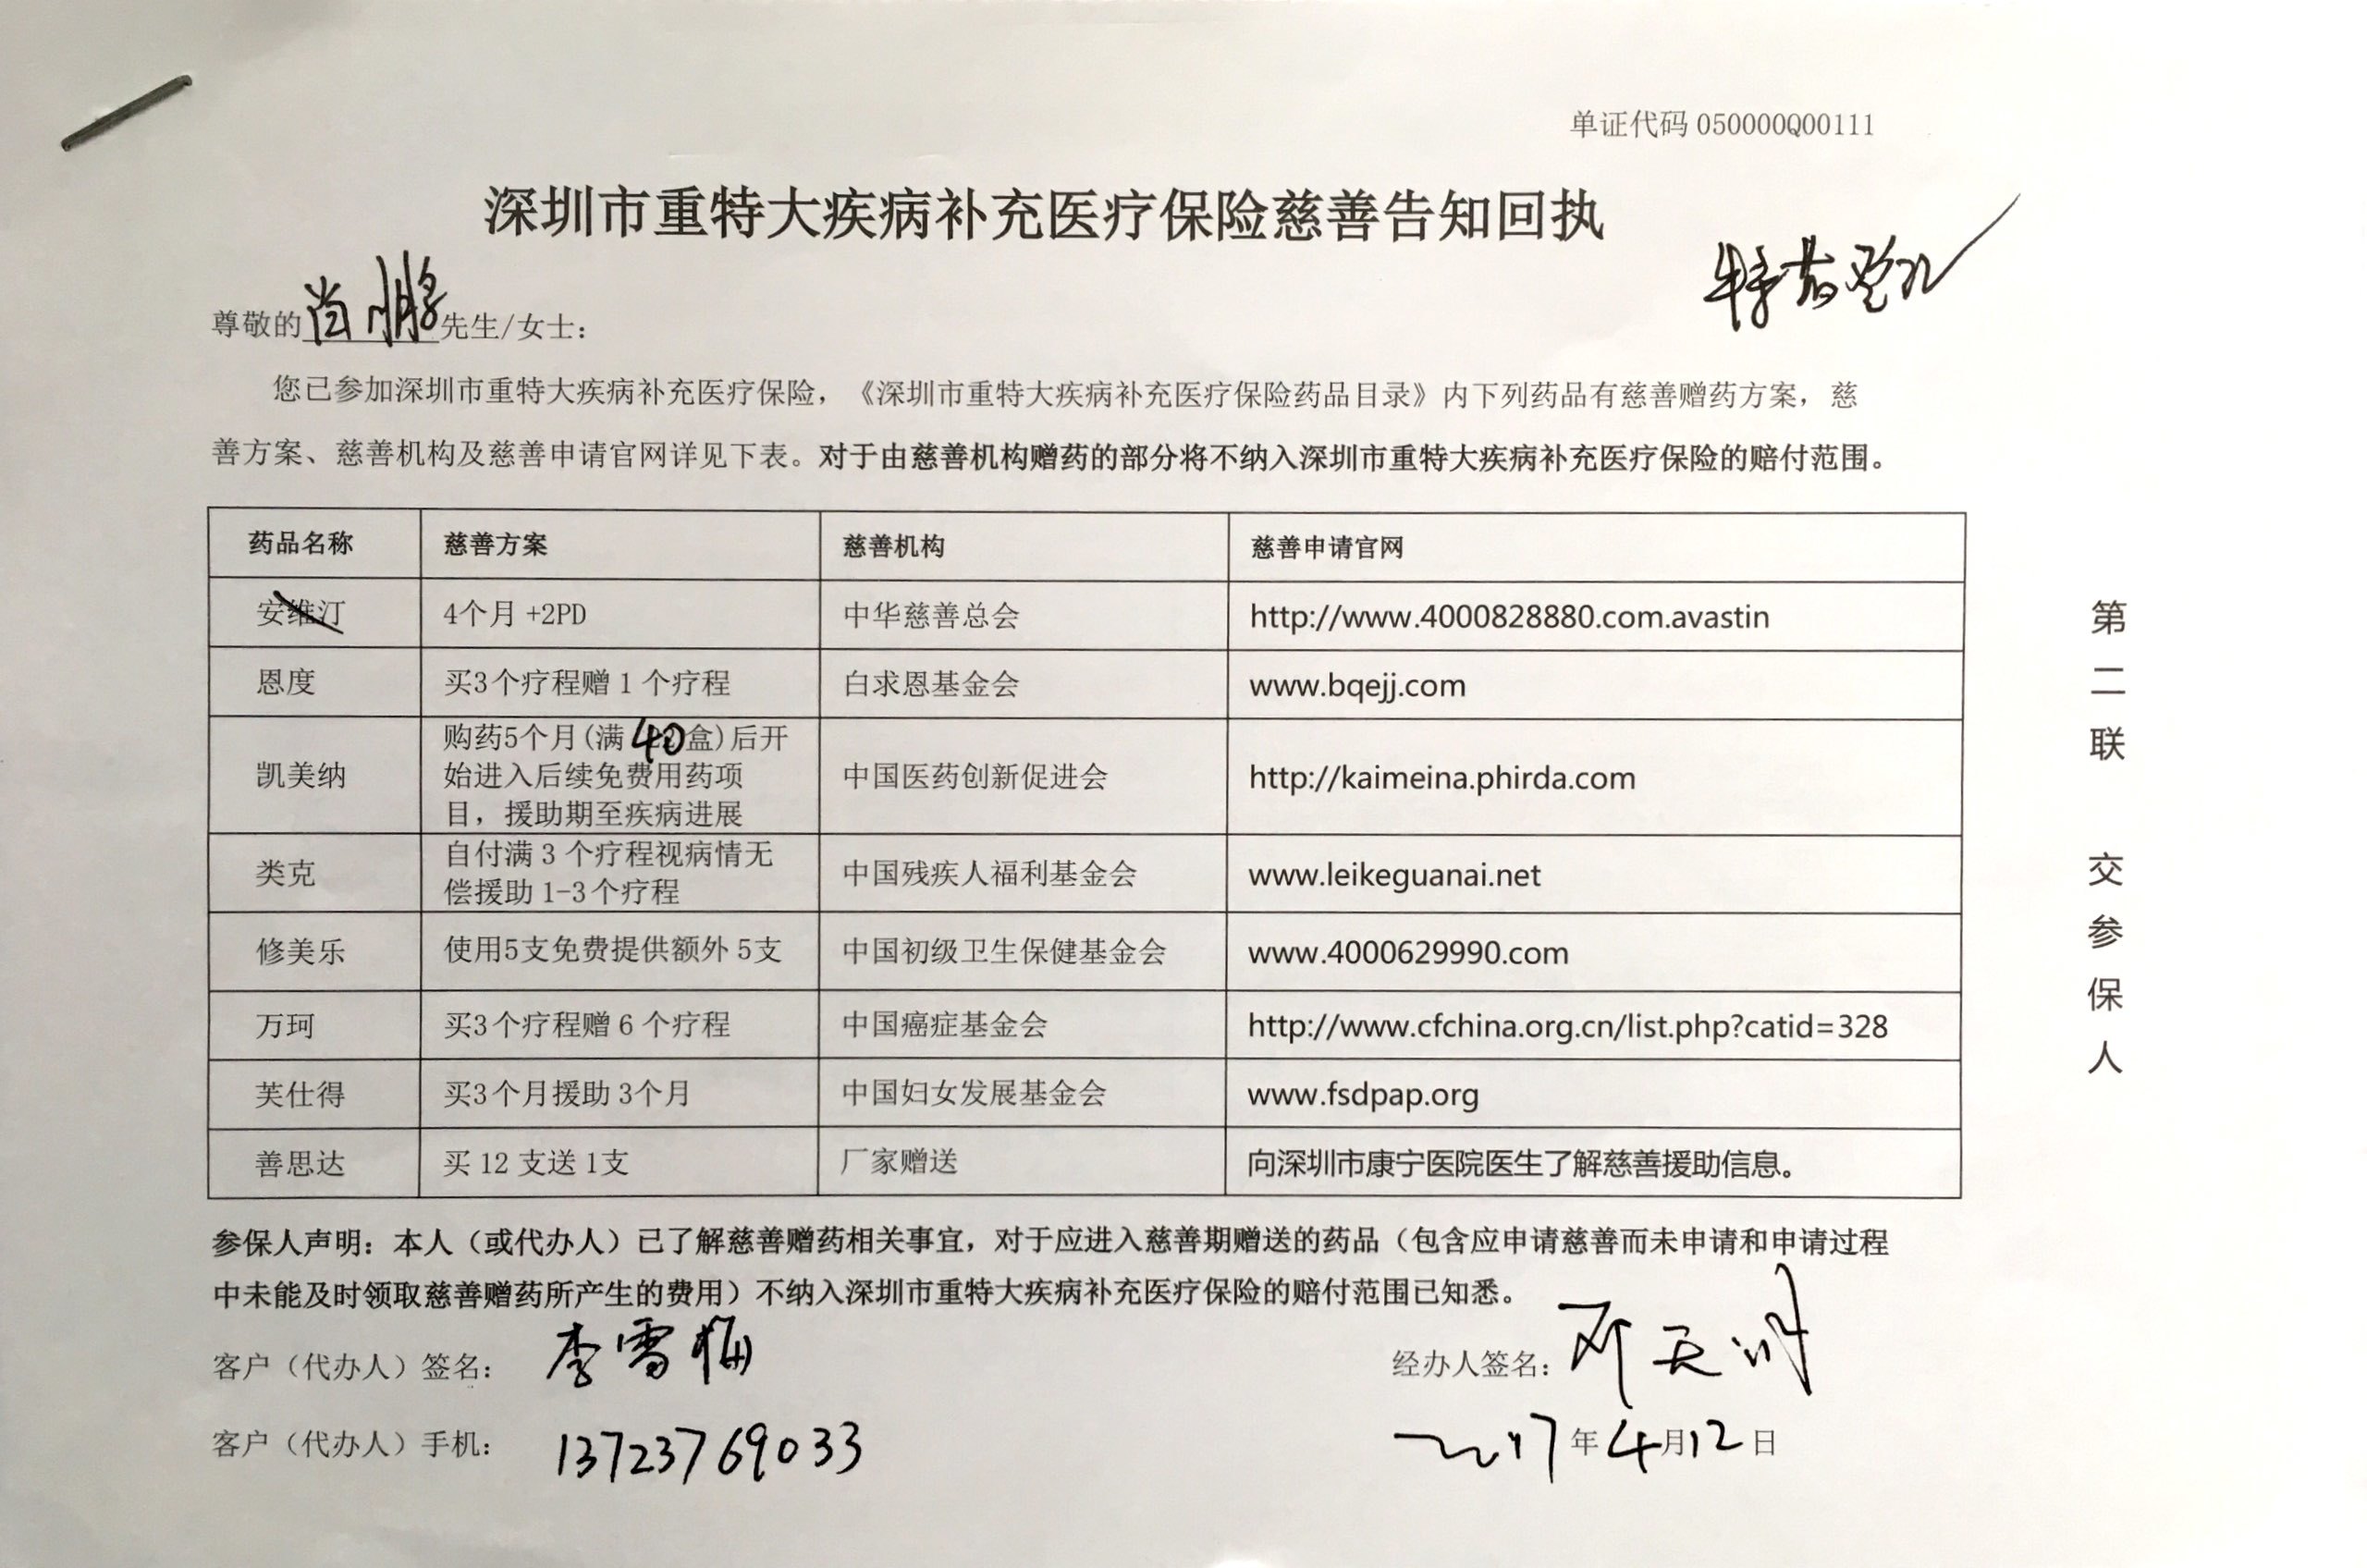 单证代码 050000Q00111
深圳市重特大疾病补充医疗保险慈善告知回执
尊敬的肖鹏先生/女士：
您已参加深圳市重特大疾病补充医疗保险，《深圳市重特大疾病补充医疗保险药品目录》内下列药品有慈善赠药方案，慈
善方案、慈善机构及慈善申请官网详见下表。对于由慈善机构赠药的部分将不纳入深圳市重特大疾病补充医疗保险的赔付范围。
药品名称 慈善方案 慈善机构 慈善申请官网
安维汀 4个月 +2PD 中华慈善总会 http://www.4000828880.com.avastin
恩度 买3个疗程赠 1 个疗程 白求恩基金会 www.bqejj.com
购药5个月(满40盒)后开
凯美纳 始进入后续免费用药项 中国医药创新促进会 http://kaimeina.phirda.com
目，援助期至疾病进展
自付满 3 个疗程视病情无
类克 中国残疾人福利基金会 www.leikeguanai.net
偿援助 1-3个疗程
修美乐 使用5支免费提供额外 5支 中国初级卫生保健基金会 www.4000629990.com
万珂 买3个疗程赠 6 个疗程 中国癌症基金会 http://www.cfchina.org.cn/list.php?catid=328
芙仕得 买3个月援助 3个月 中国妇女发展基金会 www.fsdpap.org
善思达 买 12 支送 1支 厂家赠送 向深圳市康宁医院医生了解慈善援助信息。
参保人声明：本人（或代办人）已了解慈善赠药相关事宜，对于应进入慈善期赠送的药品（包含应申请慈善而未申请和申请过程
中未能及时领取慈善赠药所产生的费用）不纳入深圳市重特大疾病补充医疗保险的赔付范围已知悉。
客户（代办人）签名： 李雪梅 经办人签名：
客户（代办人）手机： 13723769033 2017年4月12日
第二联 交参保人